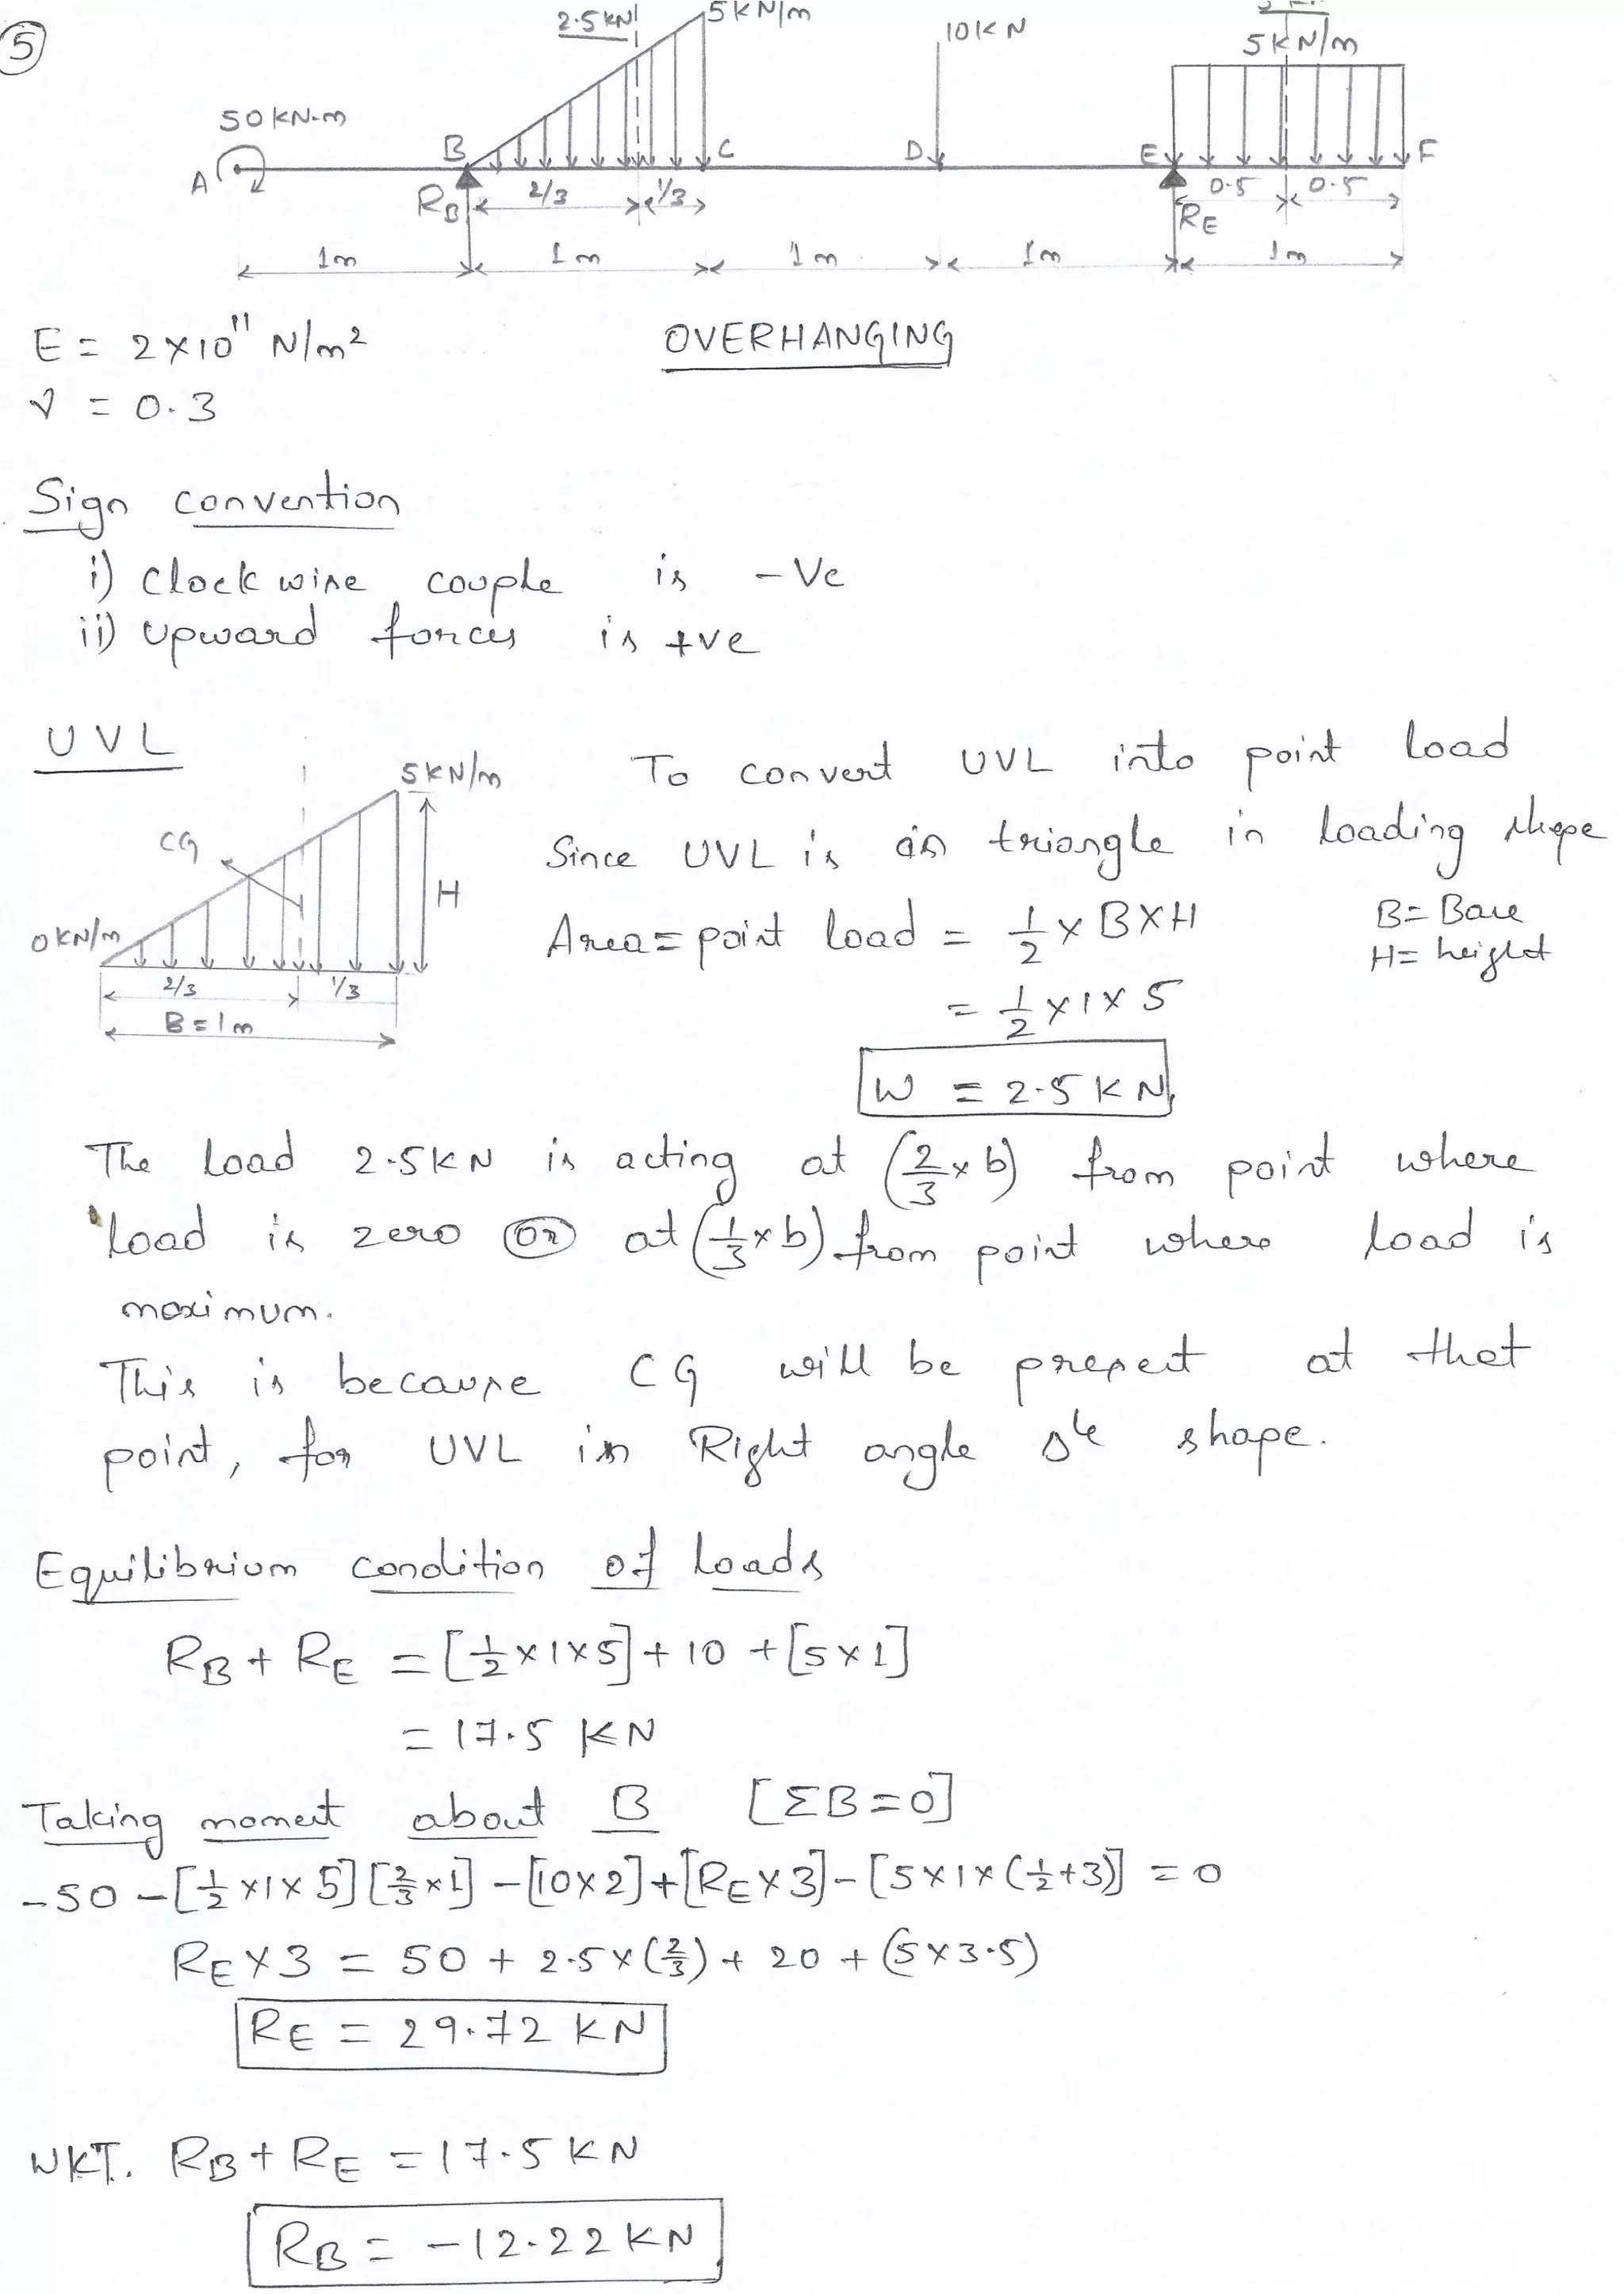 5
2.5 KN
5 KN/m
10 KN
5 KN/m
50 KN-m
A
B
C
D
E
F
RB
2/3
1/3
RE
0.5
0.5
1m
1m
1m
1m
1m
E = 2×10¹¹ N/m²
OVERHANGING
ν = 0.3
Sign convention
i) Clockwise couple is -Ve
ii) Upward forces is +ve
UVL
5KN/m
CG
H
0 KN/m
2/3
1/3
B = 1m
To convert UVL into point load
Since UVL is in triangle in loading shape
Area = point load = 1/2 × B × H
B = Base
H = height
= 1/2 × 1 × 5
W = 2.5 KN
The load 2.5KN is acting at (2/3 × b) from point where
load is zero or at (1/3 × b) from point where load is
maximum.
This is because CG will be present at that
point, for UVL in Right angle Δle shape.
Equilibrium condition of loads
RB + RE = [1/2 × 1 × 5] + 10 + [5 × 1]
= 17.5 KN
Taking moment about B [ΣB = 0]
-50 - [1/2 × 1 × 5] [2/3 × 1] - [10 × 2] + [RE × 3] - [5 × 1 × (1/2 + 3)] = 0
RE × 3 = 50 + 2.5 × (2/3) + 20 + (5 × 3.5)
RE = 29.72 KN
WKT. RB + RE = 17.5 KN
RB = -12.22 KN